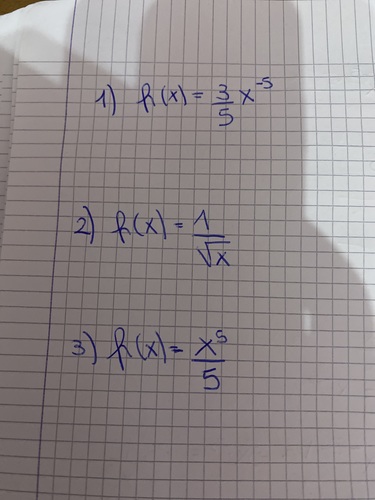 1) f(x) = 3/5 x^-5
2) f(x) = 1/√x
3) f(x) = x^5/5